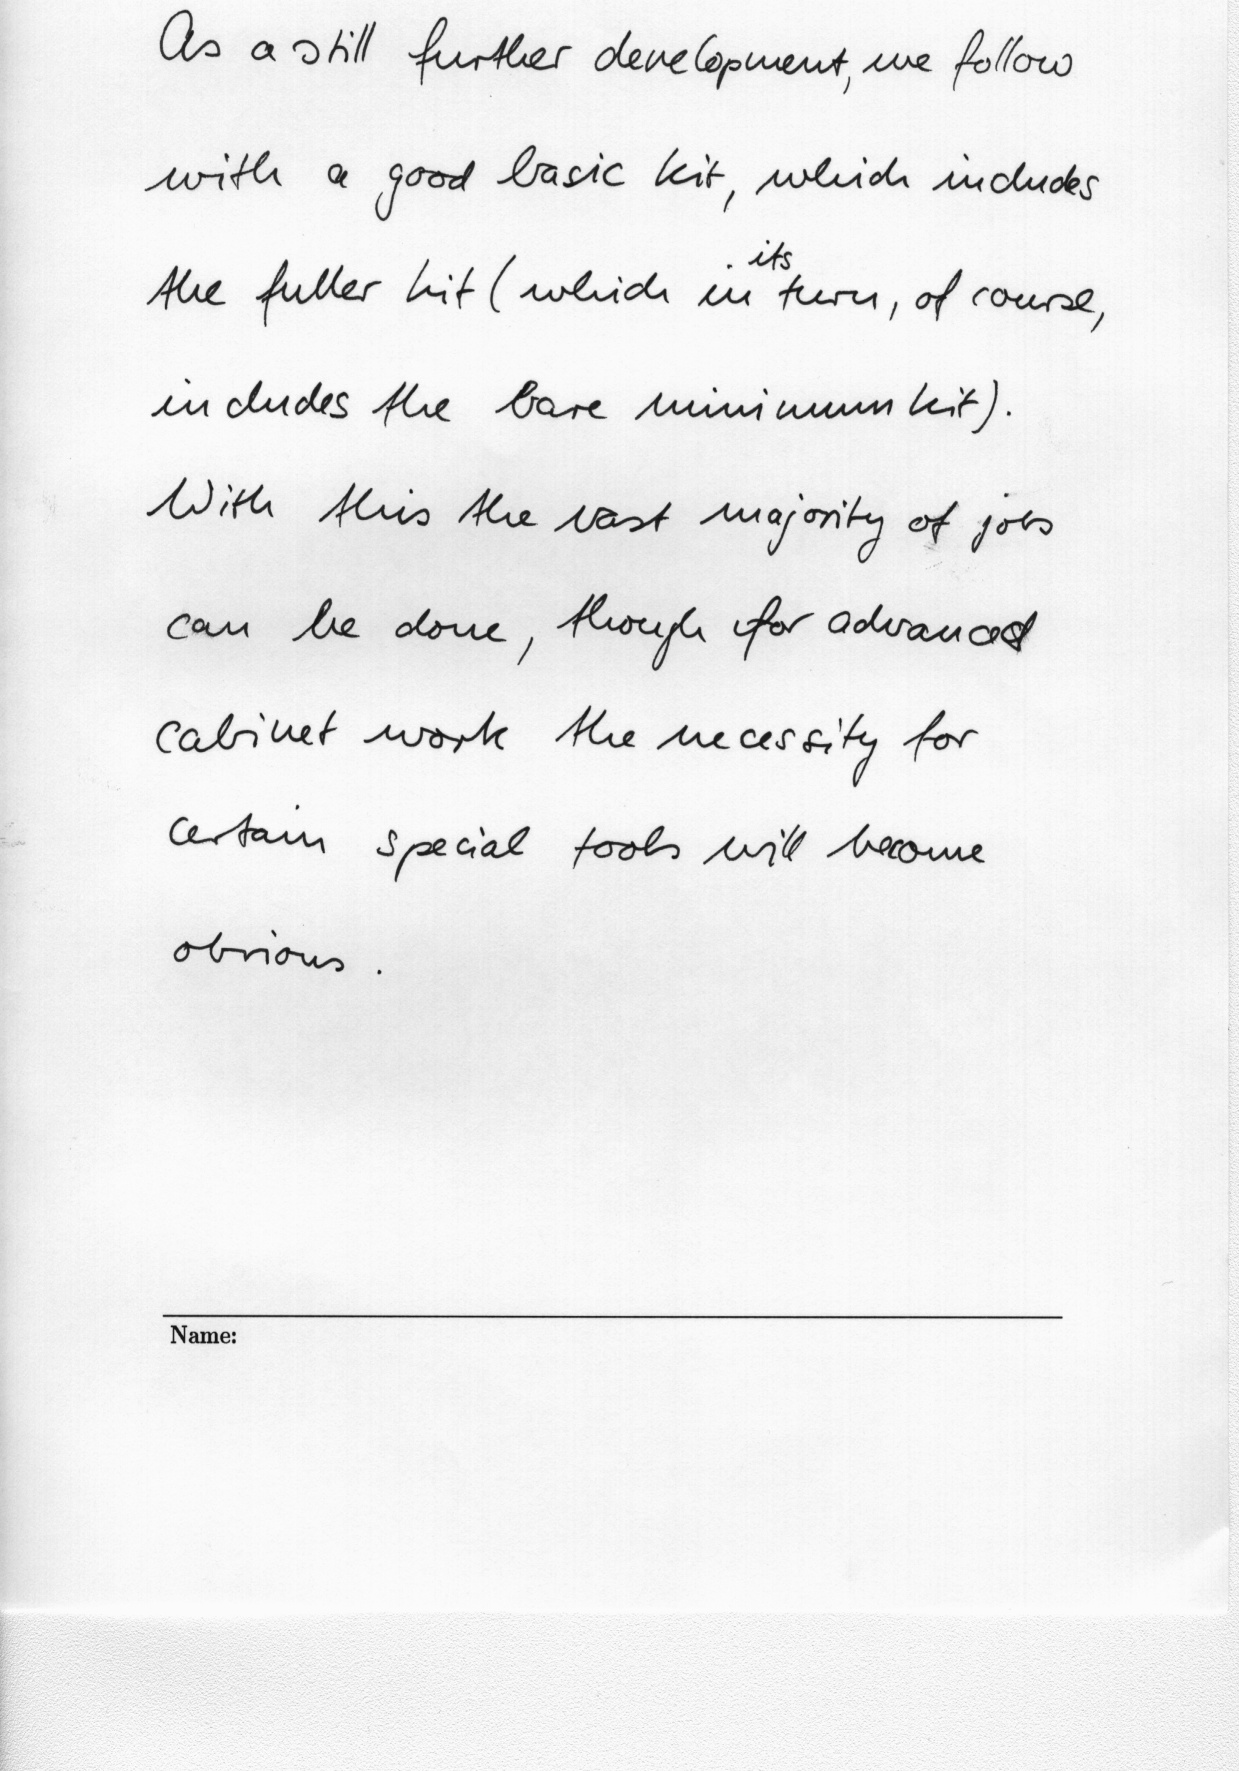 As a still further development, we follow
with a good basic kit, which includes
the fuller kit (which in its turn, of course,
includes the bare minimum kit).
With this the vast majority of jobs
can be done, though for advanced
cabinet work the necessity for
certain special tools will become
obvious.
Name: